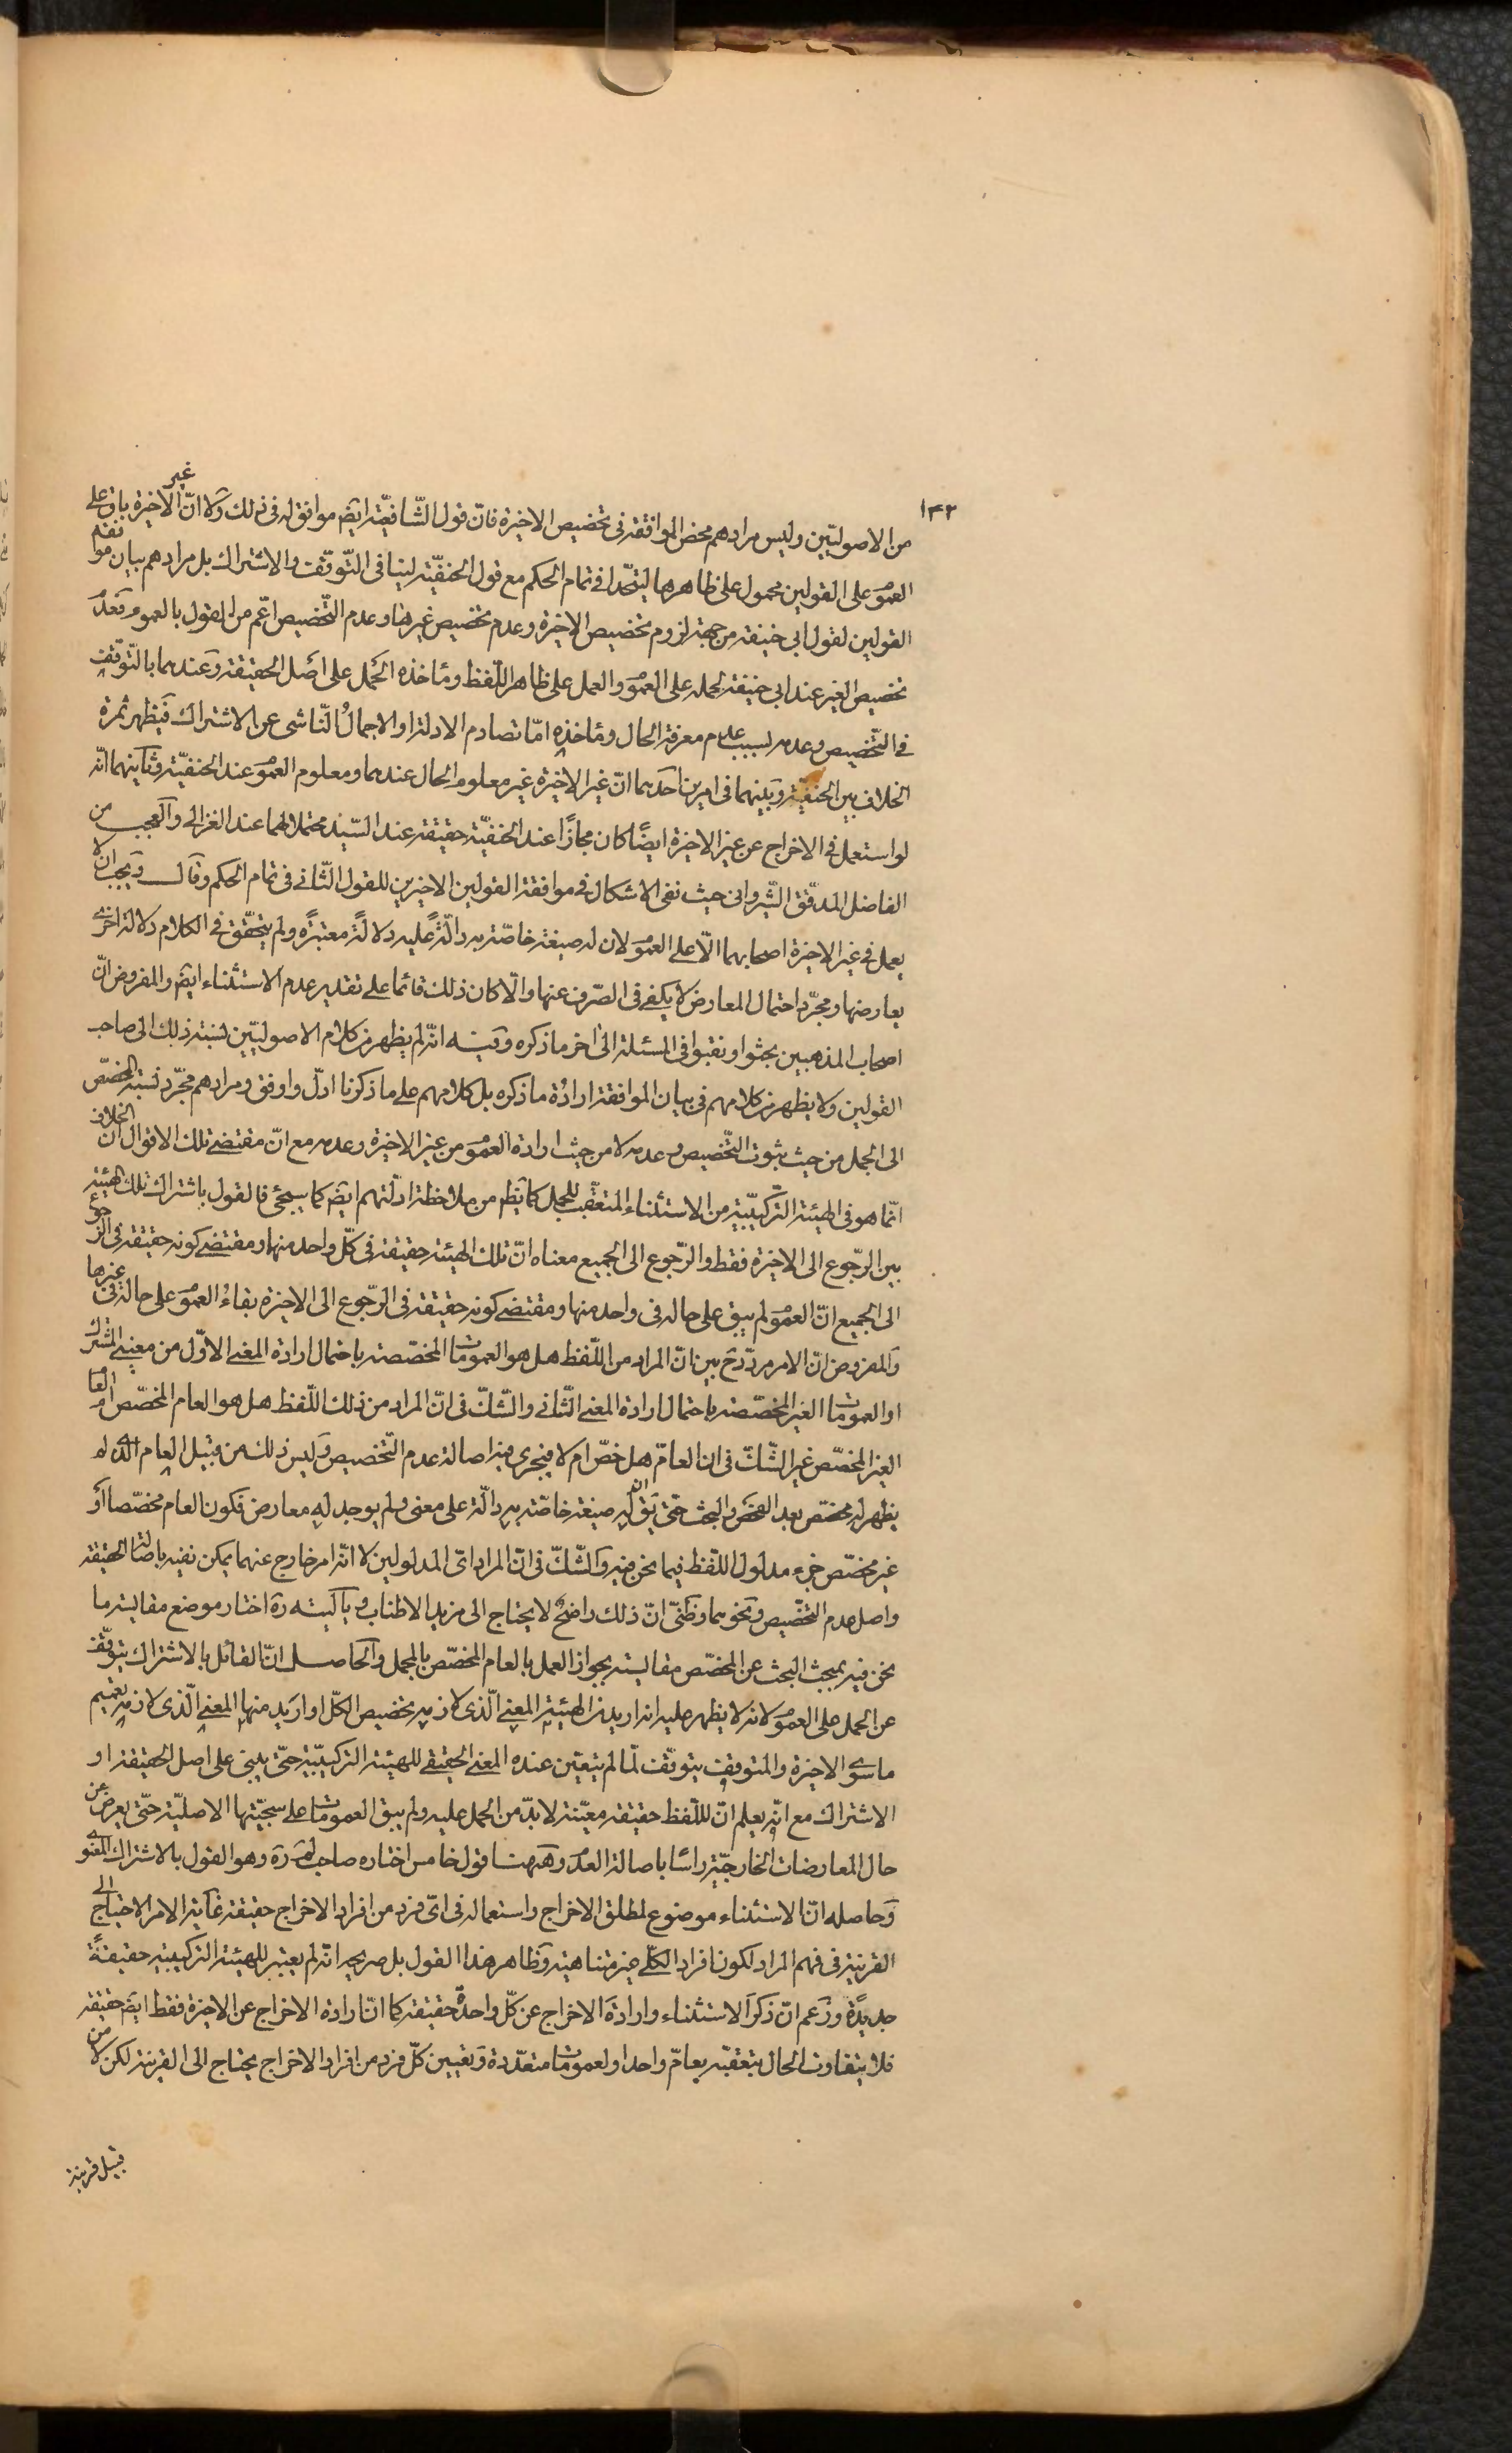 ١٤٢
من الاصوليّين وليس مرادهم محض الموافقة فى تخصيص الاخيرة فانّ قول الشّافعيّة ايضَ موافق له فى ذلك وَلا انّ غير الاخيرة باق على
العموَ على القولين محمول على ظاهرها ليتّحدا فى تمام الحكم مع قول الحنفيّة لينا فى التّوقّف والاشتراك بل مرادهم بيان موافقة
القولين لقول ابى حنيفة من جهة لزوم تخصيص الاخيرة وعدم تخصيص غيرها وعدم التّخصيص اعّم من القول بالعموم فعَدَم
تخصيص الغير عند ابى حنيفة لحمله على العموَ والعمل على ظاهر اللّفظ ومأخذه الحَمل على اصَل الحقيقة وَعندهما بالتّوقّف
فى التّخصيص وعدمه لسبب عدم معرفة الحال ومأخذه امّا تصادم الادلة او الاجمالُ النّاشى عن الاشتراك فيَظهر ثمرة
الخلاف بين الحنفيّة وَبينهما فى امرين احَدهما انّ غير الاخيرة غير معلوم الحال عندهما ومعلوم العموَ عند الحنفيّة وَثانيهما انّه
لو استعمل فى الاخراج عن غير الاخيرة ايضًا كان مجازًا عند الحنفيّة حقيقة عند السّيّد محتملا لهما عند الغزالى وَالعجب من
الفاضل المدقّق الشّيروانى حيث نفى الاشكال فى موافقة القولين الاخيرين للقول الثّانى فى تمام الحكم وقَال وَيجب ان لا
يعمل فى غير الاخيرة اصحابهما الّا على العموَ لان له صيغة خاصّة به دالّةً عليه دلالةً معتبرةً ولم يتحقّق فى الكلام دلالة اخرى
يعارضها ومجرّد احتمال المعارض لا يكفى فى الصّرف عنها والّا كان ذلك قائما على تقدير عدم الاستثناء ايضَ والمفروض انّ
اصحاب المذهبين بحثوا ونقبوا فى المسئلة الى اخر ما ذكره وَفيه انّه لم يظهر من كلام الاصوليّين نسبة ذلك الى صاحب
القولين ولا يظهر من كلامهم فى بيان الموافقة ارادُة ما ذكره بل كلامهم على ما ذكرنا ادلّ واوفق ومرادهم مجرّد نسبة المخصّص
الى الجمل من حيث ثبوت التّخصيص وعدمه لا من حيث ارادة العموَ من غير الاخيرة وعدمه مع انّ مقتضى تلك الاقوال انّ الخلاف
انّما هو فى الهيئة التّركيبيّة من الاستثناء المتعقّب للجمل كما يَظهر من ملاحظة ادلّتهم ايضَ كما سيجئ فالقول باشتراك تلك الهيئة
بين الرّجوع الى الاخيرة فقط والرّجوع الى الجميع معناه انّ تلك الهيئة حقيقة فى كلّ واحد منها ومقتضى كونه حقيقة فى الرّجوع
الى الجميع انّ العموَ لم يبق على حاله فى واحد منها ومقتضى كونه حقيقة فى الرّجوع الى الاخيرة بقاءُ العموَ على حاله فى غيرها
وَالمفروض انّ الامر مردّدٌ بين انّ المراد من اللّفظ هل هو العمومات المخصّصة باحتمال ارادة المعنى الاوّل من معنيى المشترك
او العمومات الغير المخصّصة باحتمال ارادة المعنى الثّانى والشّكّ فى انّ المراد من ذلك اللّفظ هل هو العام المخصّص او العام
الغير المخصّص غير الشّكّ فى ان العامّ هل خصّ ام لا فيجرى فيه اصالة عدم التّخصيص وَليس ذلك من قبيل العام الّذى لم
يظهر له مخصّص بعد الفحَص والبحث حتى يَق انّ له صيغة خاصّة به دالّة على معنى ولم يوجد له معارض فكون العام مخصّصا اوَ
غير مخصّص جزء مدلول اللّفظ فيما نحن فيه وَالشّكّ فى انّ المراد اىّ المدلولين لا انّه امر خارج عنهما يمكن نفيه باصالة الحقيقة
واصل عدم التّخصيص ونحوهما وَظنّى انّ ذلك واضحٌ لا يحتاج الى مزيد الاطناب وَيا ليته رَه اختار موضع مقايسة ما
نحن فيه بمبحث البحث عن المخصّص مقايسته بجواز العمل بالعام المخصّص بالمجمل وَالحاصل انّ القائل بالاشتراك يتوقّف
عن الحمل على العموَ لانه لا يظهر عليه انه اريد من الهيئة المعنى الّذى لازمه تخصيص الكلّ او اريَد منها المعنى الّذى لازمه تعميم
ما سوى الاخيرة والمتوقف يتوقّف لمّا لم يتعيّن عنده المعنى الحقيقى للهيئة التركيبيّة حتّى يبنى على اصل الحقيقة او
الاشتراك مع انّه يعلم انّ لللّفظ حقيقة معيّنة لا بدّ من الحمل عليه ولم يبق العمومات على سجيّتها الاصليّة حتّى يعرض عن
حال المعارضات الخارجيّة راسًا باصالة العدَم وهَهنا قول خامس اختاره صاحب لم رَه وهو القول بالاشتراك المعنوى
وَحاصله انّ الاستثناء موضوع لمطلق الاخراج واستعماله فى اىّ فرد من افراد الاخراج حقيقة غاية الامر الاحتياج الى
القرينة فى فهم المراد لكون افراد الكلّى غير متناهية وظَاهر هذا القول بل صريحه انّه لم يعتبر للهيئة التركيبية حقيقةً
جديدًة وزَعم انّ ذكرَ الاستثناء وارادة الاخراج عن كلّ واحدةٌ حقيقة كما انّ ارادة الاخراج عن الاخيرة فقط ايضَ حقيقة
فلا يتفاوت الحال بتعقبه بعامّ واحد او لعمومات متعدّدة وَتعيين كلّ فرد من افراد الاخراج يحتاج الى القرينة لكن لا من
قبيل قرينة